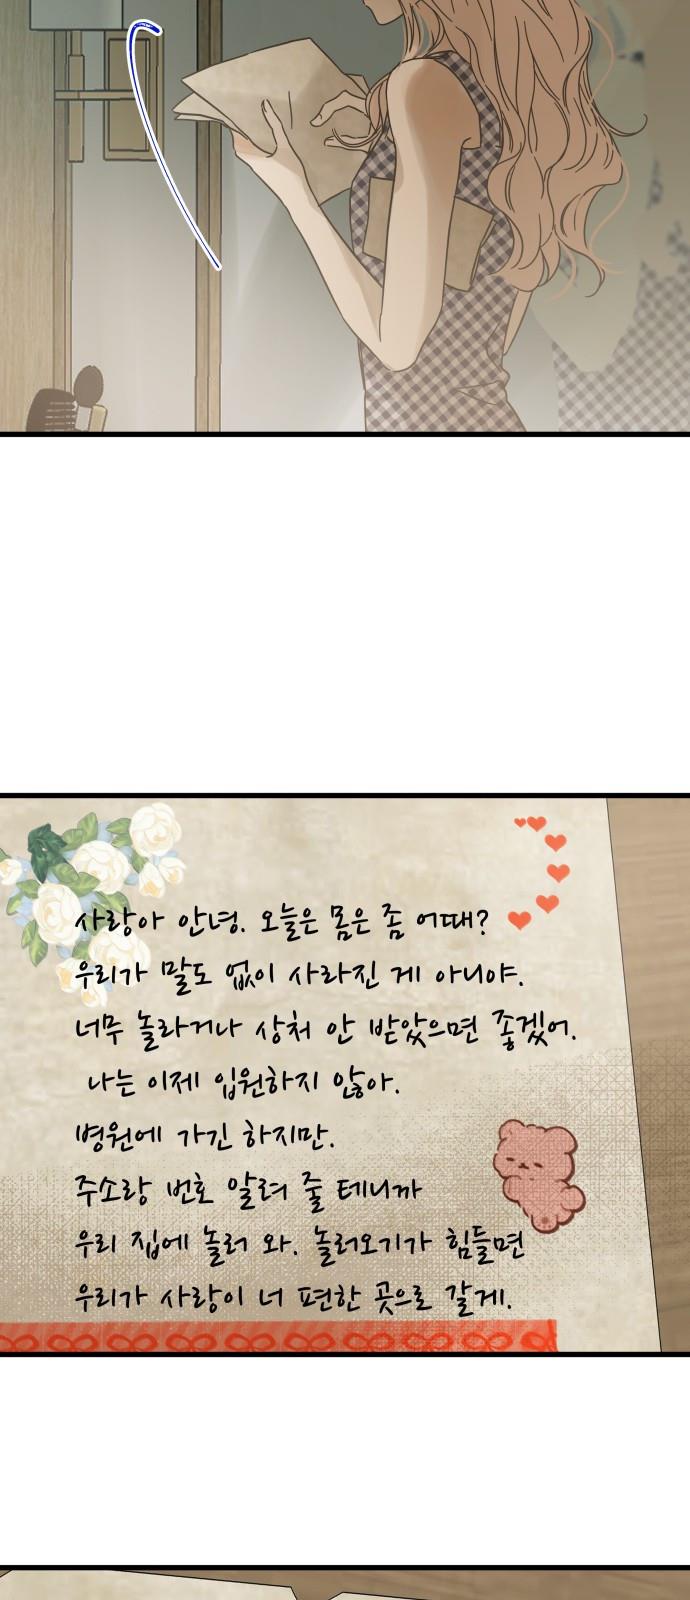 사랑아 안녕. 오늘은 몸은 좀 어때?
우리가 말도 없이 사라진 게 아니야.
너무 놀라거나 상처 안 받았으면 좋겠어.
나는 이제 입원하지 않아.
병원에 가긴 하지만.
주소랑 번호 알려 줄 테니까
우리 집에 놀러 와. 놀러오기가 힘들면
우리가 사랑이 너 편한 곳으로 갈게.